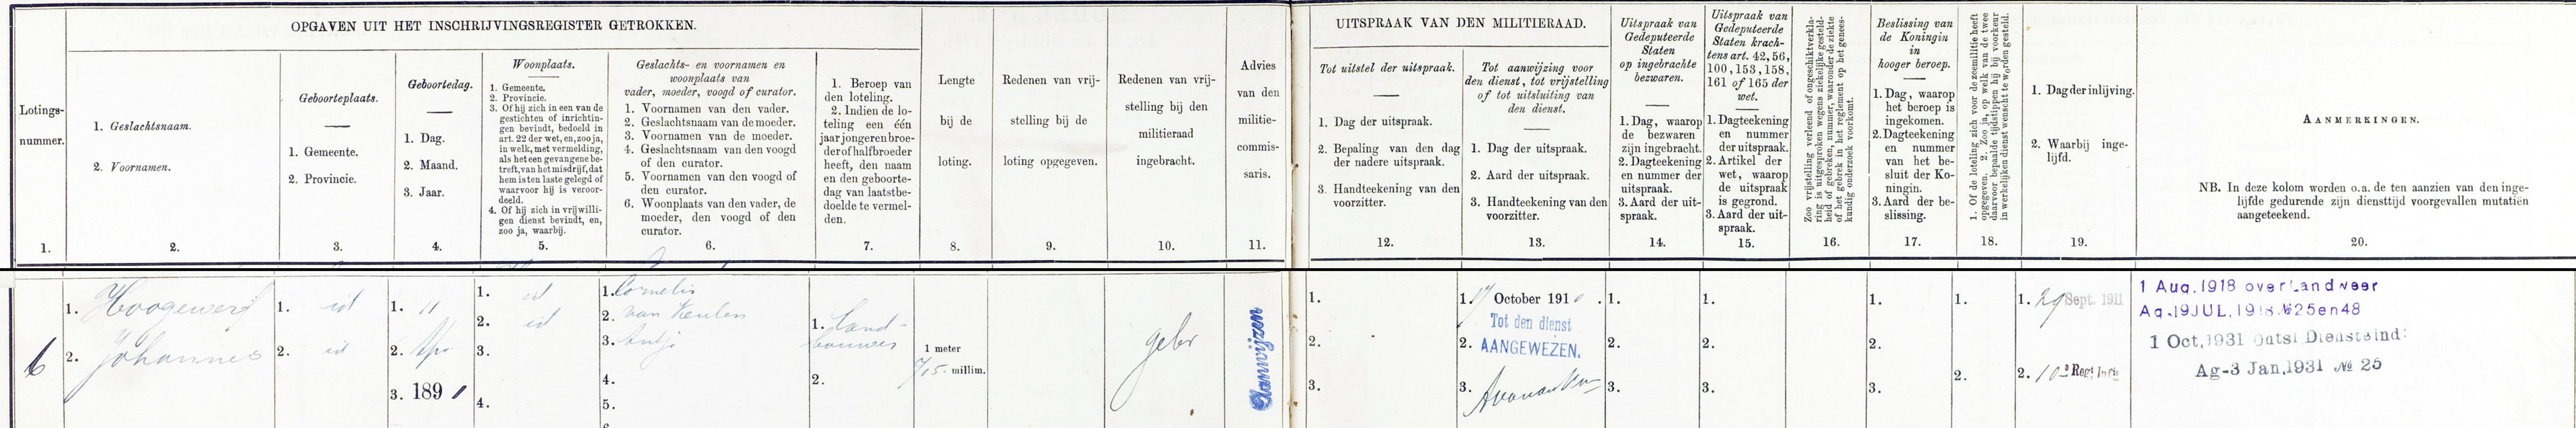 OPGAVEN UIT HET INSCHRIJVINGSREGISTER GETROKKEN.
Lotings-
nummer.
1.
1. Geslachtsnaam.
2. Voornamen.
2.
Geboorteplaats.
1. Gemeente.
2. Provincie.
3.
Geboortedag.
1. Dag.
2. Maand.
3. Jaar.
4.
Woonplaats.
1. Gemeente.
2. Provincie.
3. Of hij zich in een van de
gestichten of inrichtin-
gen bevindt, bedoeld in
art. 22 der wet, en, zoo ja,
in welk, met vermelding,
als het een gevangene be-
treft, van het misdrijf, dat
hem is ten laste gelegd of
waarvoor hij is veroor-
deeld.
4. Of hij zich in vrijwilli-
gen dienst bevindt, en,
zoo ja, waarbij.
5.
Geslachts- en voornamen en
woonplaats van
vader, moeder, voogd of curator.
1. Voornamen van den vader.
2. Geslachtsnaam van de moeder.
3. Voornamen van de moeder.
4. Geslachtsnaam van den voogd
of den curator.
5. Voornamen van den voogd of
den curator.
6. Woonplaats van den vader, de
moeder, den voogd of den
curator.
6.
1. Beroep van
den loteling.
2. Indien de lo-
teling een één
jaar jongeren broe-
der of halfbroeder
heeft, den naam
en den geboorte-
dag van laatstbe-
doelde te vermel-
den.
7.
Lengte
bij de
loting.
8.
Redenen van vrij-
stelling bij de
loting opgegeven.
9.
Redenen van vrij-
stelling bij den
militieraad
ingebracht.
10.
Advies
van den
militie-
commis-
saris.
11.
UITSPRAAK VAN DEN MILITIERAAD.
Tot uitstel der uitspraak.
1. Dag der uitspraak.
2. Bepaling van den dag
der nadere uitspraak.
3. Handteekening van den
voorzitter.
12.
Tot aanwijzing voor
den dienst, tot vrijstelling
of tot uitsluiting van
den dienst.
1. Dag der uitspraak.
2. Aard der uitspraak.
3. Handteekening van den
voorzitter.
13.
Uitspraak van
Gedeputeerde
Staten
op ingebrachte
bezwaren.
1. Dag, waarop
de bezwaren
zijn ingebracht.
2. Dagteekening
en nummer der
uitspraak.
3. Aard der uit-
spraak.
14.
Uitspraak van
Gedeputeerde
Staten krach-
tens art. 42, 56,
100, 153, 158,
161 of 165 der
wet.
1. Dagteekening
en nummer
der uitspraak.
2. Artikel der
wet, waarop
de uitspraak
is gegrond.
3. Aard der uit-
spraak.
15.
Zoo vrijstelling verleend of ongeschiktverkla-
ring is uitgesproken wegens ziekelijke gesteld-
heid of gebreken, nummer, waaronder de ziekte
of het gebrek in het reglement op het genees-
kundig onderzoek voorkomt.
16.
Beslissing van
de Koningin
in
hooger beroep.
1. Dag, waarop
het beroep is
ingekomen.
2. Dagteekening
en nummer
van het be-
sluit der Ko-
ningin.
3. Aard der be-
slissing.
17.
1. Of de loteling zich voor de zeemilitie heeft
opgegeven. 2. Zoo ja, op welk van de twee
daarvoor bepaalde tijdstippen hij bij voorkeur
in werkelijken dienst wenscht te worden gesteld.
18.
1. Dag der inlijving.
2. Waarbij inge-
lijfd.
19.
AANMERKINGEN.
NB. In deze kolom worden o.a. de ten aanzien van den inge-
lijfde gedurende zijn diensttijd voorgevallen mutatiën
aangeteekend.
20.
6
1. Hoogewerf
2. Johannes
1. id
2. id
1. 11
2. Apr
3. 1891
1. id
2. id
3.
4.
1. Cornelis
2. van Keulen
3. Antje
4.
5.
1. Land-
bouwer
2.
1 meter
715 millim.
gebr
Aanwijzen
1.
2.
3.
1. 17 October 1910.
Tot den dienst
2. AANGEWEZEN.
3.
1.
2.
3.
1.
2.
3.
1.
2.
3.
1.
2.
1. 29 Sept. 1911
2. 10e Regt Infie
1 Aug. 1918 over Landweer
Ag. 19 JUL. 1918. № 25 en 48
1 Oct. 1931 Ontsl Diensteind:
Ag-3 Jan. 1931 № 25